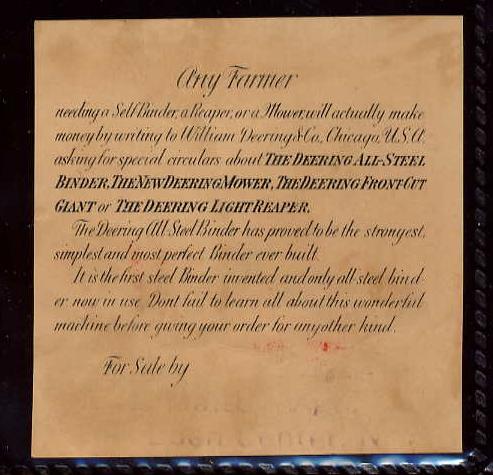 Any Farmer
needing a Self Binder, a Reaper, or a Mower, will actually make
money by writing to William Deering & Co., Chicago, U.S.A.
asking for special circulars about THE DEERING ALL-STEEL
BINDER, THE NEW DEERING MOWER, THE DEERING FRONT-CUT
GIANT or THE DEERING LIGHT REAPER.
The Deering All Steel Binder has proved to be the strongest,
simplest and most perfect Binder ever built.
It is the first steel Binder invented and only all steel bind-
er now in use. Dont fail to learn all about this wonderful
machine before giving your order for any other kind.
For Sale by